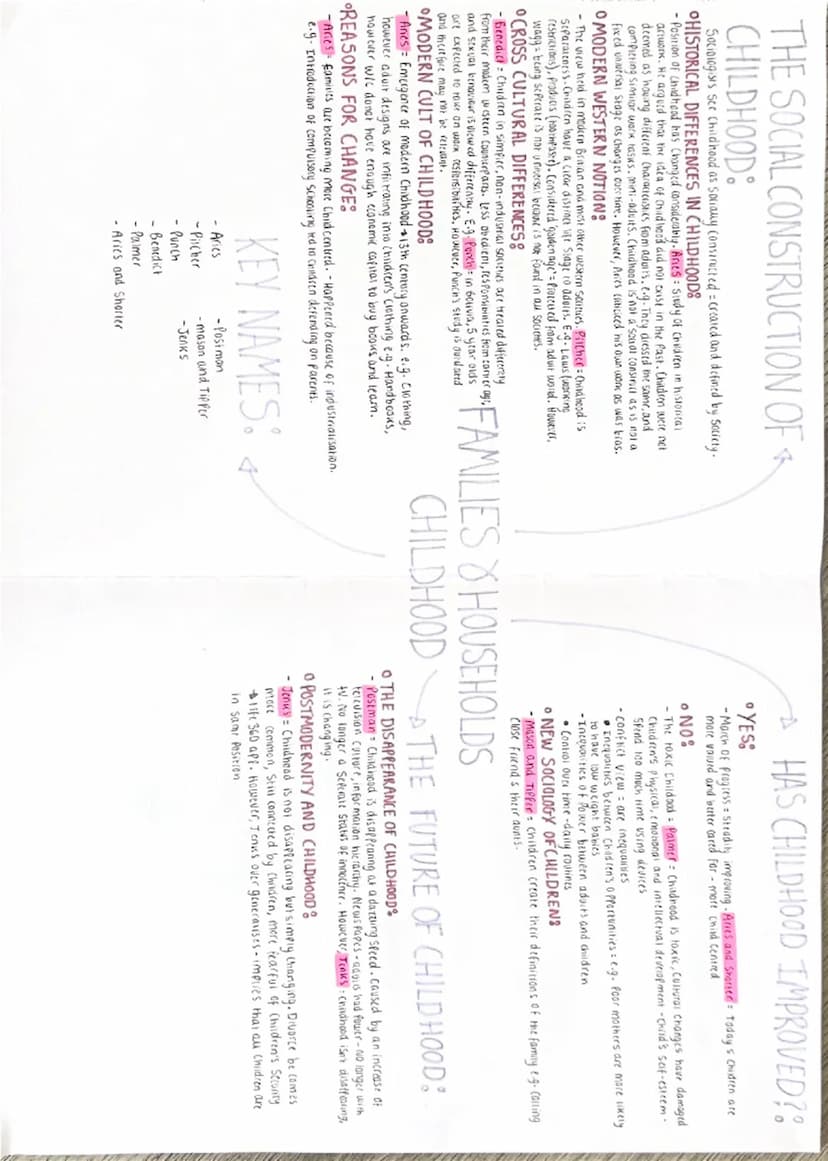 THE SOCIAL CONSTRUCTION OF
CHILDHOOD:
Sociologists see Childhood as socially constructed = created and defined by society.
HISTORICAL DIFFERENCES IN CHILDHOOD:
- Position of Childhood has changed considerably. Aries = Study of Children in historical
artwork. He argued that the idea of Childhood did not exist in the Past. Children were not
deemed as having different characteristics from adults. e.g. They dressed the same, and
completing similar work tasks. mini-adults. Childhood is not a social construct as is not a
fixed universal stage as changes overtime. However, Aries criticised his own work as was bias.
MODERN WESTERN NOTION:
- The view held in modern Britain and most other western societies. Pilcher = Childhood is
separateness. Children have a clear distinct life stage to adults. E.g. Laws (working
restrictions), Products (
). Considered 'golden age' = Protected from adult world. However,
Wagg = being seperate is not universal because is not found in all societies.
CROSS CULTURAL DIFFERENCES:
- Benedict = Children in simpler, non-industrial societies are treated differently
from their modern western counterparts. Less obedient, responsibilities from early age,
and sexual behaviour is viewed differently. E.g. Punch = in Bolivia, 5 year olds
are expected to take on work responsibilities. However, Punch's study is outdated
and therefore may not be relevant.
MODERN CULT OF CHILDHOOD:
- Aries = Emergence of modern Childhood → 13th century onwards. e.g. Clothing,
however adult designs are infiltrating into Children's Clothing e.g. Handbooks,
however w/c do not have enough economic capital to buy books and learn.
REASONS FOR CHANGE:
- Aries = families are becoming more Child centred. - Happened because of industrialisation.
e.g. Introduction of compulsory schooling led to children depending on parents.
KEY NAMES:
- Aries
- Pilcher
- Punch
- Benedict
- Palmer
- Aries and Shorter
- Postman
- mason and Tipper
- Jenks
FAMILIES & HOUSEHOLDS
CHILDHOOD
HAS CHILDHOOD IMPROVED?:
YES:
- March of Progress = Steadily improving. Aries and Shorter = Today's Children are
more valued and better cared for - more Child centred
NO:
- The toxic Childhood = Palmer = Childhood is toxic. Cultural changes have damaged
Children's Physical, emotional and intellectual development - Child's self-esteem -
Spend too much time using devices
- Conflict view = are inequalities
• Inequalities between Children's opportunities = e.g. Poor mothers are more likely
to have low weight babies
- Inequalities of Power between adults and children
• Control over time - daily routines
NEW SOCIOLOGY OF CHILDREN:
- Mason and Tipper = Children create their definitions of the family e.g. calling
close friend's their aunts.
THE FUTURE OF CHILDHOOD:
THE DISAPPEARANCE OF CHILDHOOD:
- Postman = Childhood is disappearing at a dazzling speed. Caused by an increase of
television culture, information hierarchy. Newspapers - adults had Power - no longer with
tv. No longer a Seperate Status of innocence. However, Jenks: Childhood isn't disappearing,
it is changing.
POSTMODERNITY AND CHILDHOOD:
- Jenks = Childhood is not disappearing but simply changing. Divorce becomes
more common, Still connected by Children, more fearful of Children's Security
→ life 360 app. However, Jenks over generalises - implies that all Children are
in same Position